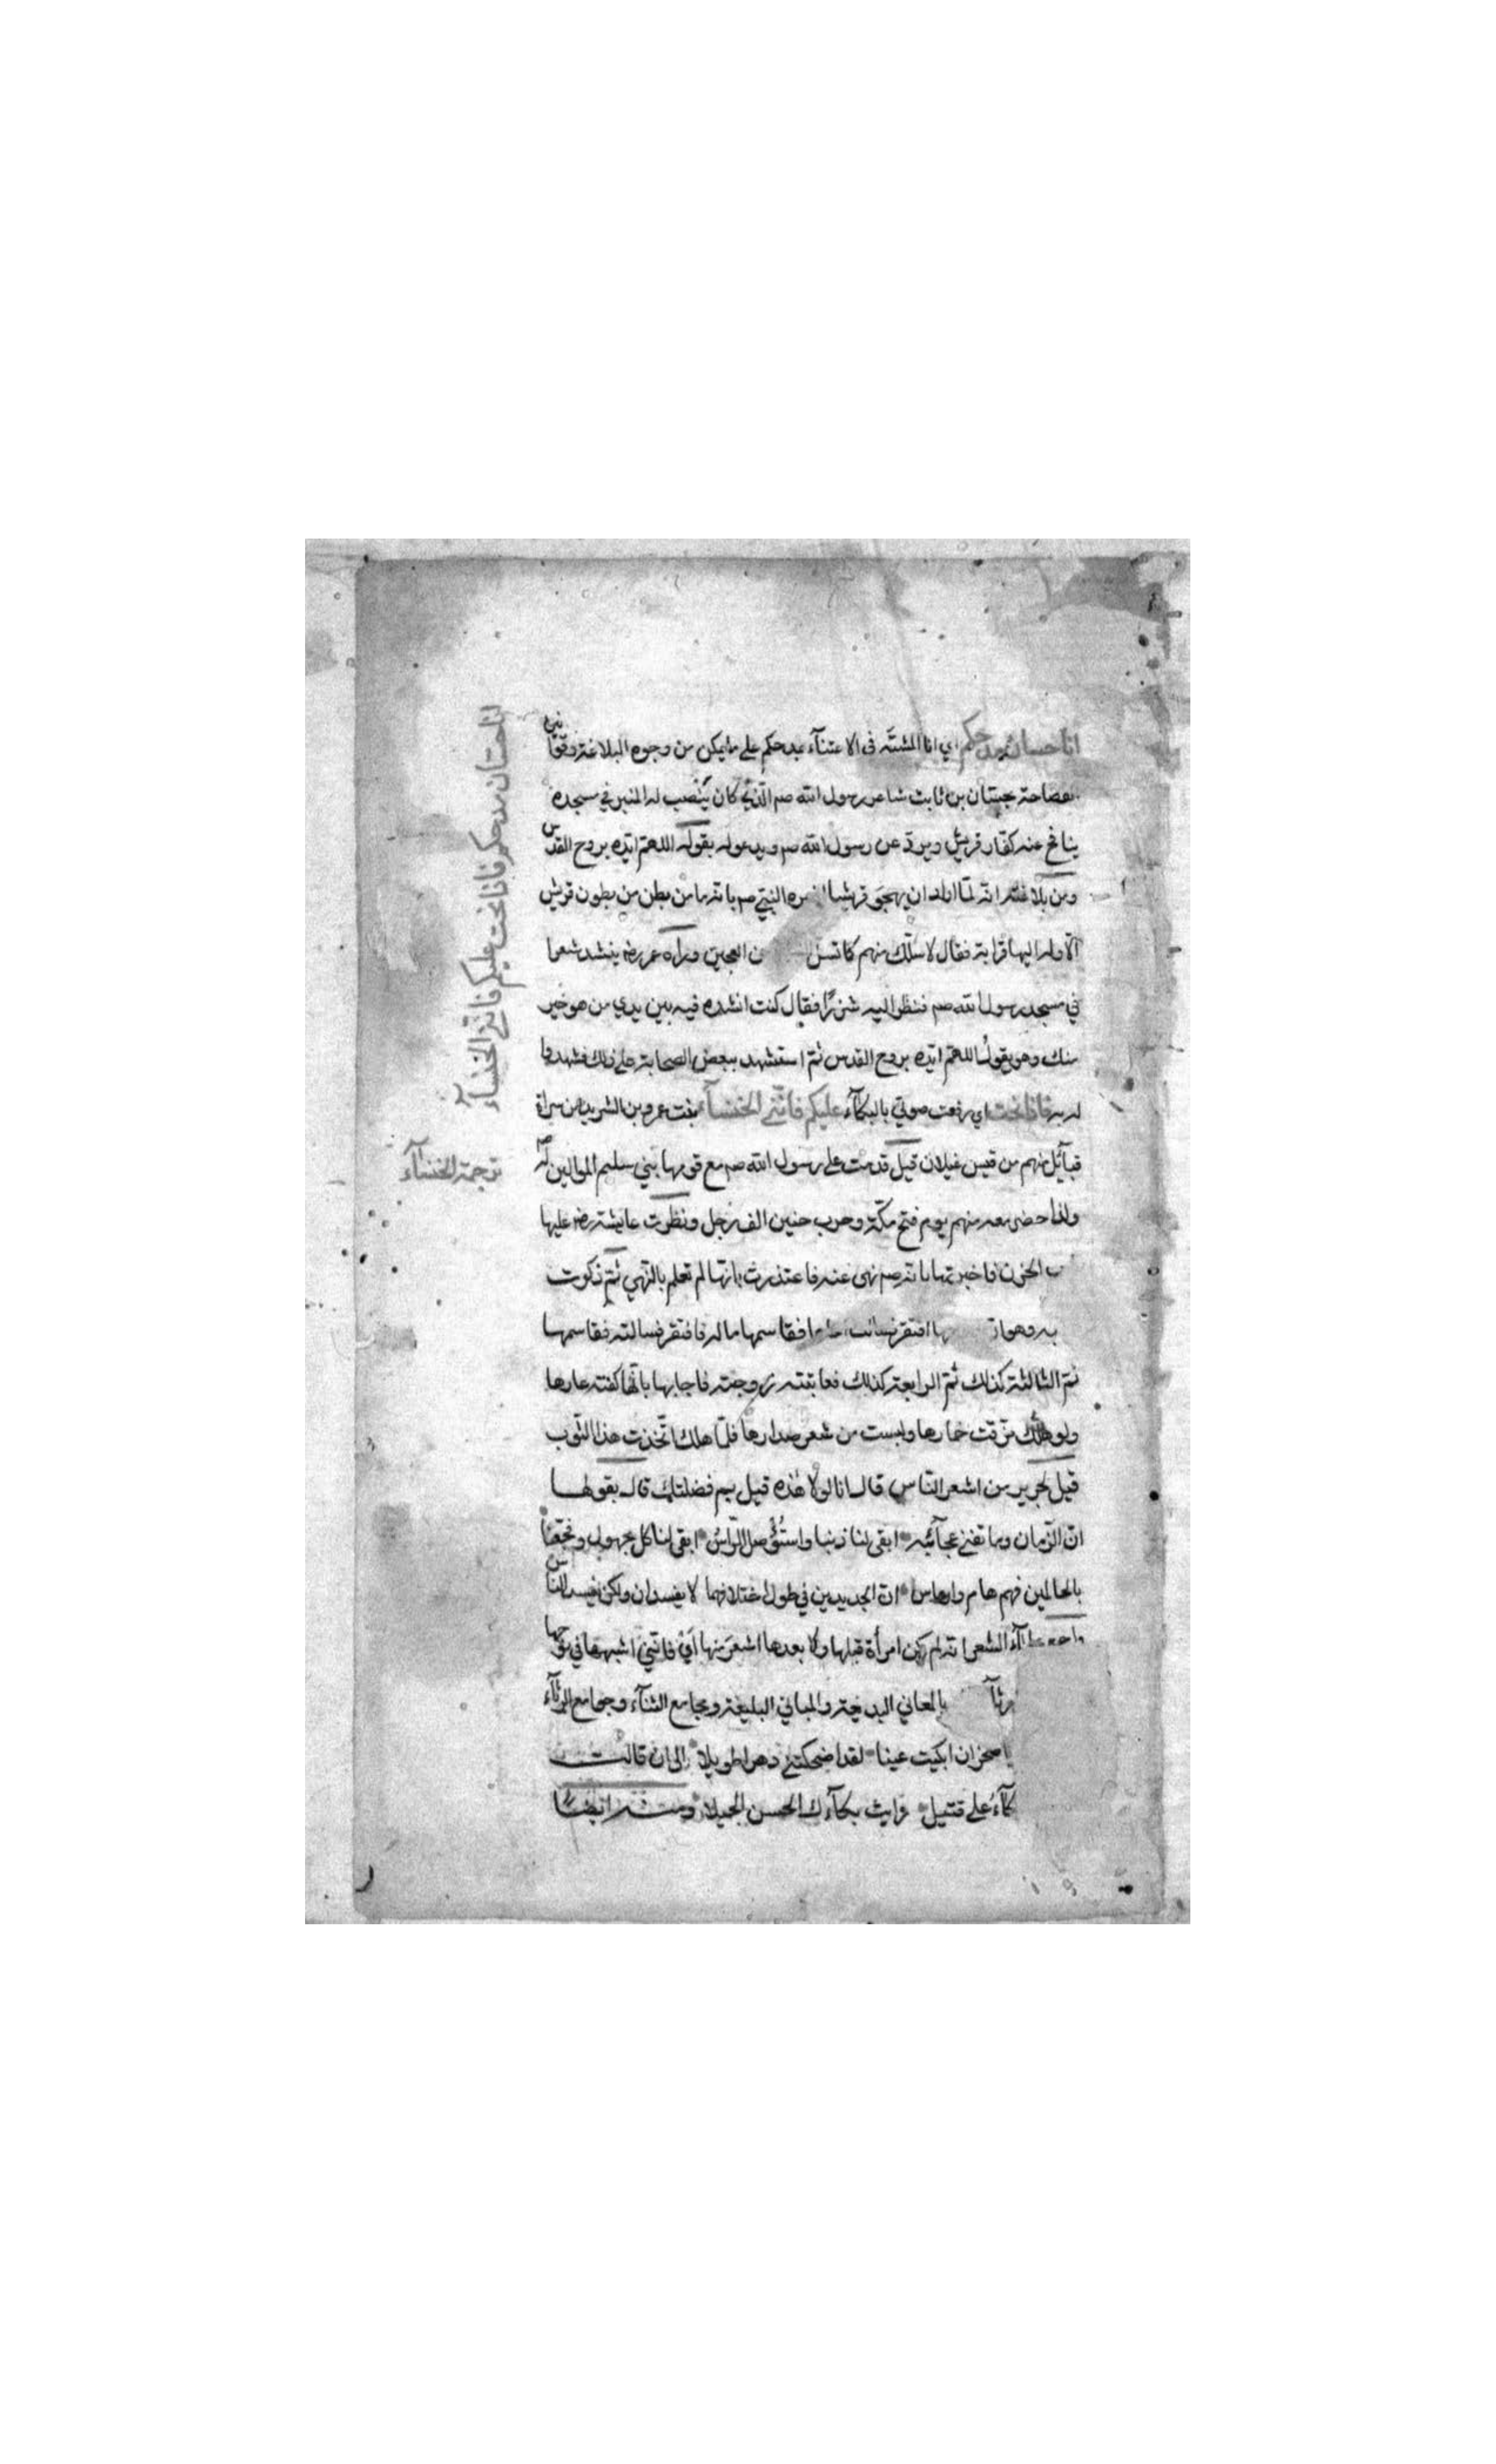 انا حسان مدحكم اي انا المشبَّه فى الاعتنآء بمدحكم على ما يمكن من وجوه البلاغة وقوّانين
بفصاحة بحسّان بن ثابت شاعر رسول الله صم الّذي كان يُنْصب له المنبر في مسجده
ينافح عنه كفّار قريش ويردّ عن رسول الله صم ويدعو له بقوله اللهمّ ايّده بروح القدس
ومن بلاغته انه لمّا اراد ان يهجو قريشا النبيّ صم بانه ما من بطن من بطون قريش
الّا وله اليها قرابة فقال لاسلّك منهم كما تسل العجين ورآه عمر رضه ينشد شعرا
في مسجد رسول الله صم فنظر اليه شزرًا فقال كنت انشده فيه بين يدي من هو خير
منك وهو يقول اللهمّ ايّده بروح القدس ثمّ استشهد ببعض الصحابة على ذلك فشهدوا
له به فاذا نحت اي رفعت صوتي بالبكآء عليكم فانّني الخنسآء بنت عمرو بن الشريد من سراة
قبآئل منهم من قيس غيلان قيل قدمت على رسول الله صم مع قومها بني سليم الموالين له صم
ولذا حضر معه منهم يوم فتح مكّة وحرب حنين الف رجل ونظرت عايشة رضه عليها
الحزن فاخبرتها بانه صم نهى عنه فاعتذرت بانها لم تعلم بالنّهي ثمّ ذكرت
به وهو افتقر فقاسمها ماله فافتقر فسالته فقاسمها
ثمّ الثالثة كذلك ثمّ الرابعة كذلك فعاتبته زوجته فاجابها بانّها كفته عارها
ولو هلك مزّقت خمارها ولبست من شعر صدارها فلمّا هلك اتّخذت هذا الثّوب
قيل لجرير من اشعر النّاس قال انا لولا هذه قيل بم فضلتك قال بقولها
انّ الزّمان وما تفنى عجآئبه ابقى لنا ذنبا واستُؤصل الرّاسُ ابقى لنا كل مجهول وفجّعنا
بالحالمين فهم هام وارماس انّ الجديدين في طول اختلافهما لا يفسدان ولكن يفسد النّاس
الشعر انه لم يكن امرأة قبلها ولا بعدها اشعرَ منها اَيْ فانّني اشبهها في نوحها
بالمعاني البديعة والمباني البليغة ومجامع الثنآء وجوامع الرثآء
يا صخر ان ابكيت عينا لقد اضحكتني دهرا طويلا الى ان قالت
على قتيل رايت بكآءك الحسن الجميلا ومنه ايضًا
انا حسّان مدحكم فاذا نحت عليكم فانّني الخنسآء
ترجمة الخنسآء